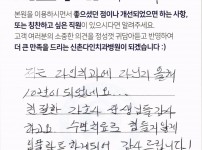 본원을 이용하시면서 좋으셨던 점이나 개선되었으면 하는 사항,
또는 칭찬하고 싶은 직원이 있으시다면 알려주세요.
고객 여러분의 소중한 의견을 정성껏 귀담아듣고 반영하여
더 큰 만족을 드리는 신촌다인치과병원이 되겠습니다 :)
저는 다인치과에 다닌지 올해
10년이 되었네요...
간호사 선생님들 감사
하고요 수면치료로 힘들지않게
치료해 주셔서 감사드립니다!